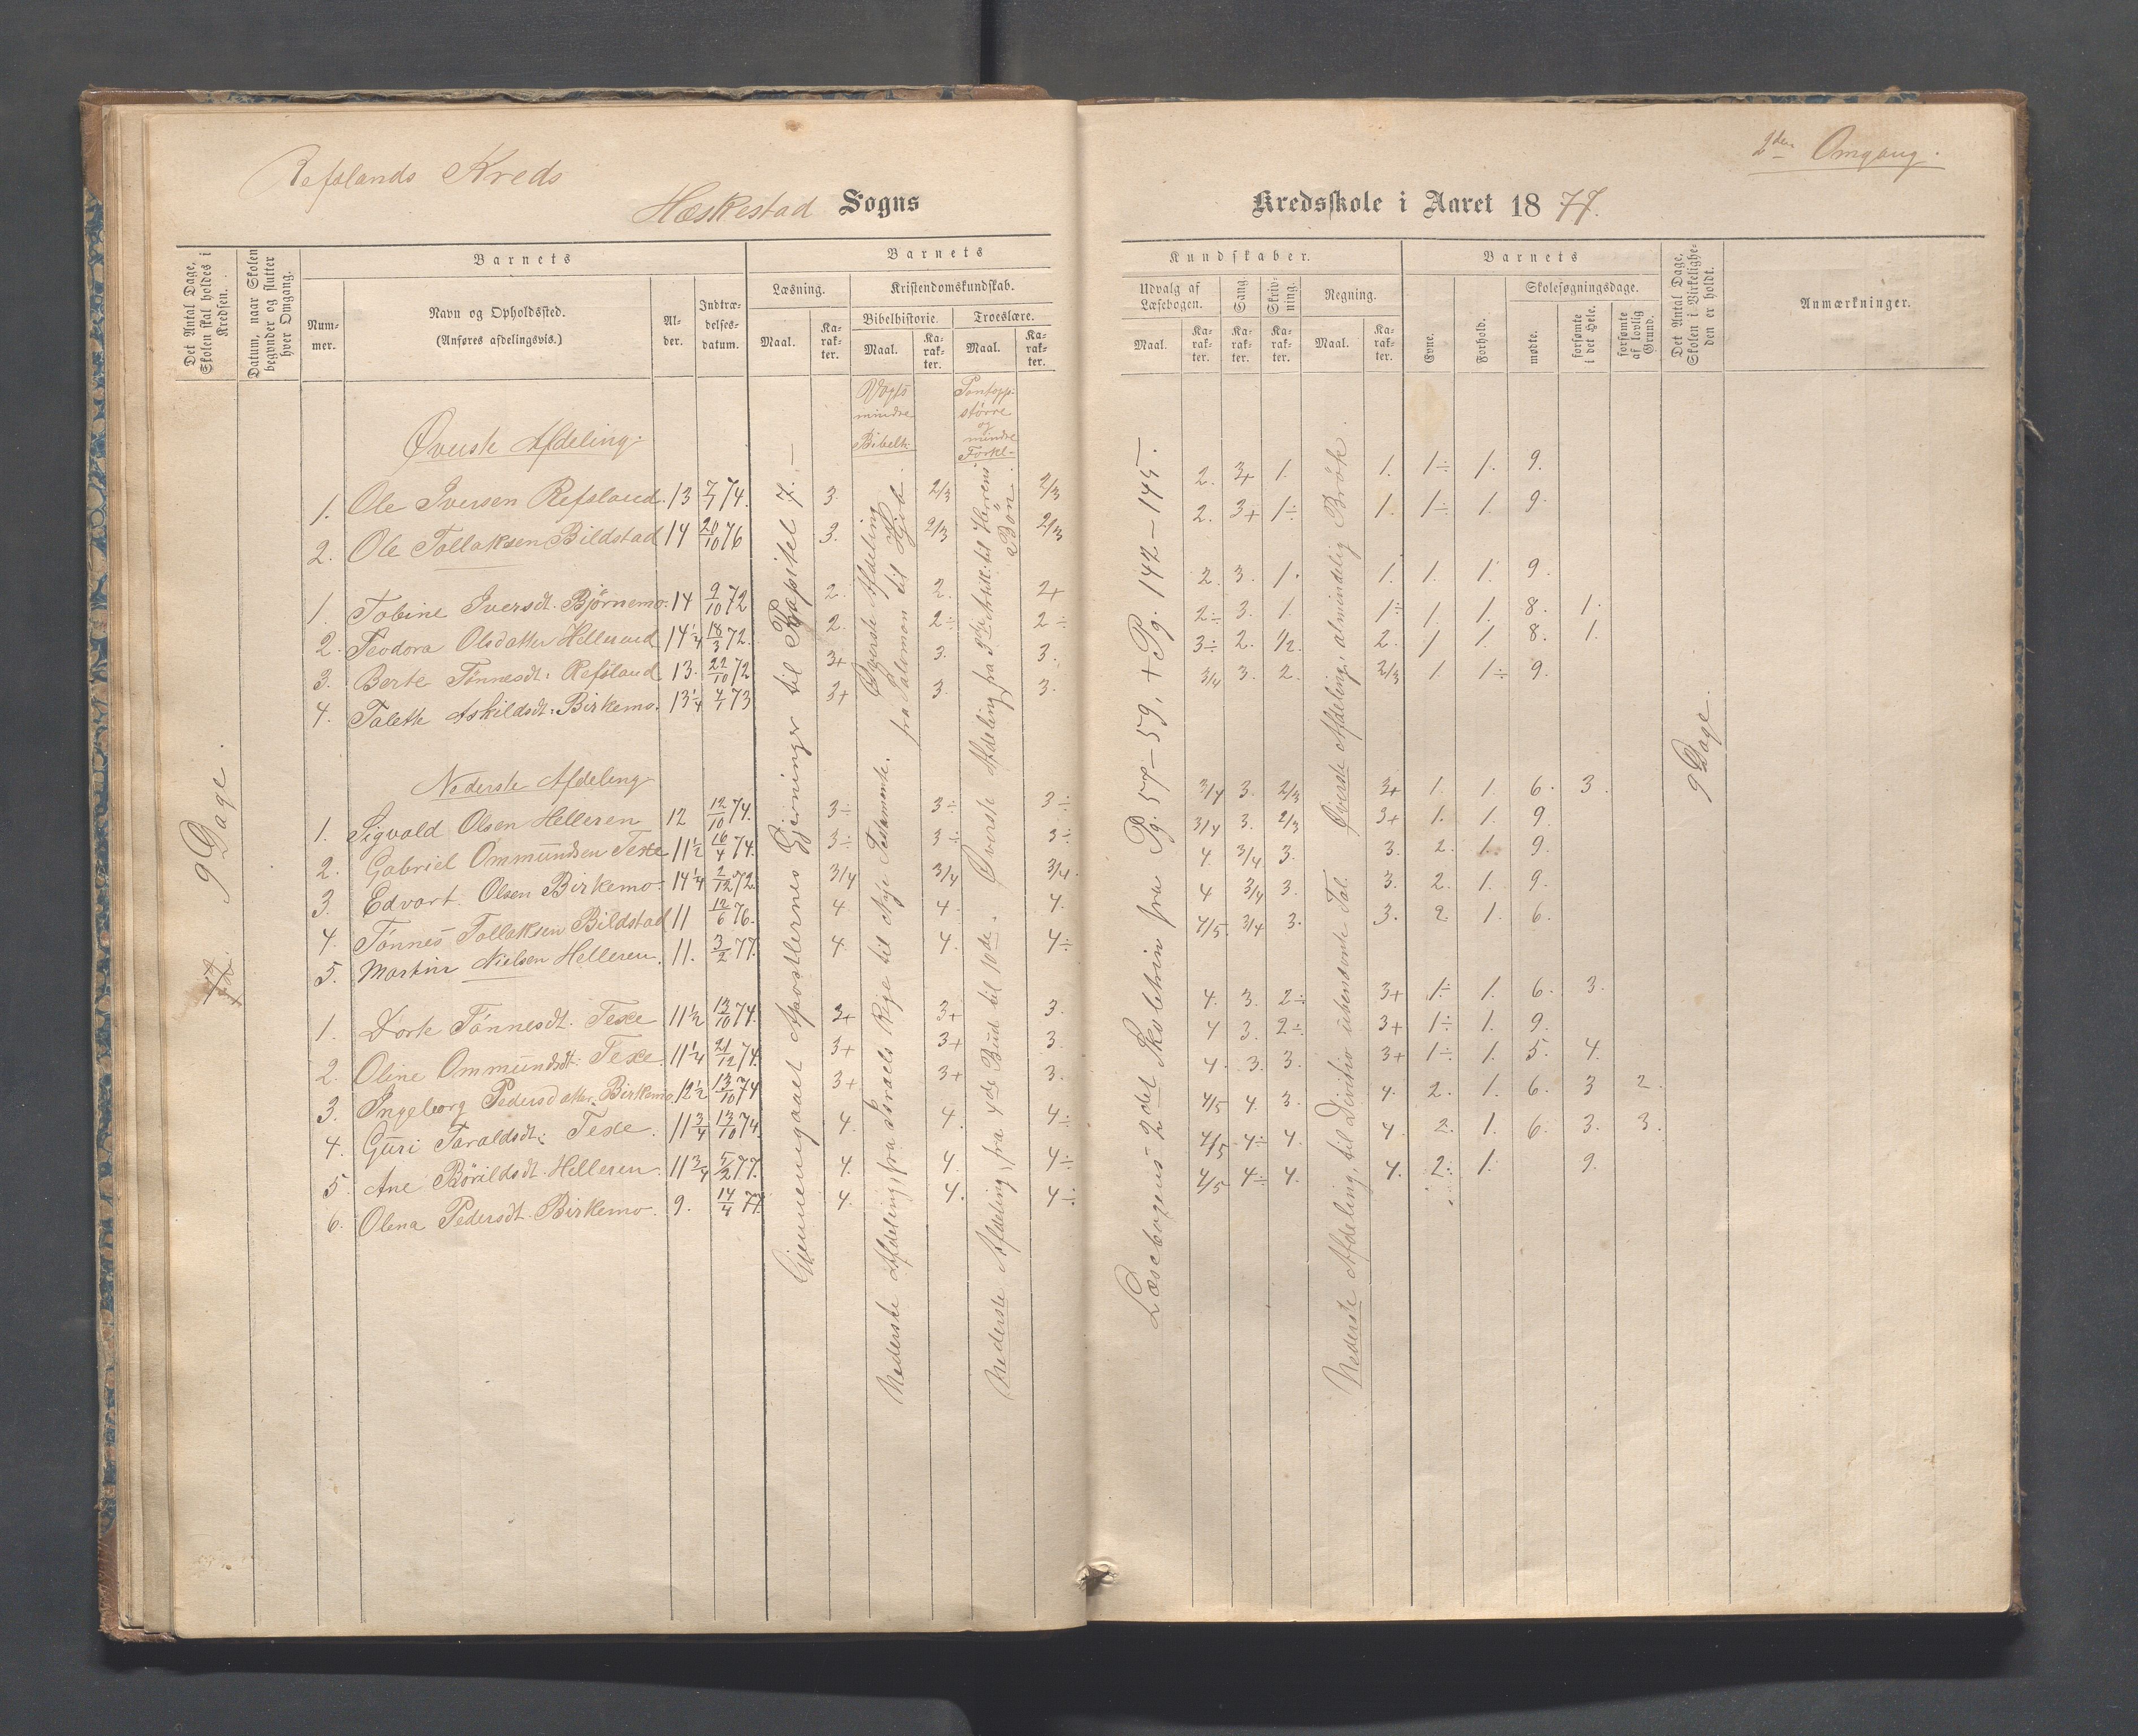 Refslands Kreds
2den Omgang.
Heskestad Sogns Kredsskole i Aaret 1877.
Det Antal Dage, Skolen skal holdes i Kredsen.
Datum, naar Skolen begynder og slutter hver Omgang.
Barnets
Barnets
Kundskaber.
Barnets
Det Antal Dage, Skolen i Virkeligheden er holdt.
Anmærkninger.
Nummer.
Navn og Opholdssted. (Anføres afdelingsvis.)
Alder.
Indtrædelsesdatum.
Læsning.
Kristendomskundskab.
Udvalg af Læsebogen.
Sang.
Skrivning.
Regning.
Evne.
Forhold.
Skolesøgningsdage.
Bibelhistorie.
Troeslære.
mødte.
forsømte i det Hele.
forsømte af lovlig Grund.
Maal. Karakter. Maal. Karakter. Maal. Karakter. Maal. Karakter. Karakter. Karakter. Maal. Karakter.
Vogts mindre Bibelh.
Pontopp. større og mindre Forkl.
Øverste Afdeling.
1. Ole Iversen Refsland. 13 7/1 74. 3. 2/3 2/3 2. 3+ 1. 1. 1÷ 1. 9.
2. Ole Tollaksen Bildstad 14 20/10 76 3. 2/3 2/3 2. 3+ 1÷ 1. 1÷ 1. 9.
1. Tobine Iversdt. Bjørnemo. 14 9/10 72 2. 2. 2+ 2. 3. 1. 1. 1. 1. 9.
2. Teodora Olsdatter Helleren 14¼ 18/3 72. 2. 2÷ 2÷ 2÷ 3. 1. 1÷ 1. 1. 8. 1.
3. Berte Tønnesdt. Refsland 13. 22/10 72 3+ 3. 3. 3÷ 2. 1/2. 2. 1 1. 8. 1.
4. Talette Askildsdt. Birkemo. 13¼ 4/1 73 3+ 3. 3. 3/4 3. 2. 2/3 1. 1÷ 9.
Nederste Afdeling
1. Sigvald Olsen Helleren 12 12/10 74. 3÷ 3÷ 3÷ 3/4 3. 2/3 3+ 1. 1. 6. 3.
2. Gabriel Ommundsen Texe 11½ 16/4 74. 3÷ 3÷ 3÷ 3/4 3. 2/3 3+ 1. 1. 9.
3. Edvart Olsen Birkemo. 14¼ 2/12 72. 3/4 3/4 3/4. 4. 3/4 3. 3. 2. 1. 9.
4. Tønnes Tollaksen Bildstad 11 12/6 76. 4 4. 4. 4 3/4 3. 3. 2. 1. 9.
5. Martin Nielsen Helleren. 11. 3/2 77. 4. 4. 4÷ 4/5. 3/4 3. 3. 2. 1. 6.
1. Dorte Tønnesdt. Texe 11½ 13/10 74. 3+ 3+ 3. 4. 3. 2÷ 3+ 1÷ 1. 6. 3.
2. Oline Ommundsdt. Texe. 11¼ 21/12 74. 3+ 3+ 3. 4 3. 2÷ 3+ 1÷ 1. 9.
3. Ingeborg Pedersdatter Birkemo 12½ 13/10 74 3+ 3+ 3. 4. 3. 3. 3+ 1÷ 1. 5. 4.
4. Guri Taraldsdt. Texe. 11¾ 13/10 74. 4. 4. 4÷ 4/5 4. 3. 4. 2. 1. 6. 3 2.
5. Ane Børildsdt. Helleren. 11¾ 5/2 77. 4. 4. 4÷ 4/5 4÷ 4. 4. 2. 1. 6. 3. 3.
6. Olena Pedersdt. Birkemo. 9. 14/4 77. 4. 4. 4÷ 4/5 4÷ 4. 4. 2. 1. 9.
9 Dage.
Gjennemgaaet Apostlernes Gjerninger til Kapitel 7. —
Øverste Afdeling fra Salomon til Hjob.
Nederste Afdeling, fra Israels Rige til Nye Testamente.
Øverste Afdeling fra 3die Artik. til Herrens Bøn.
Nederste Afdeling, fra 4de Bud til 10de.
Læsebogens 2det Skoletrin fra Pg. 57–59, + Pg. 142–145.
Øverste Afdeling, almindelig Brøk.
Nederste Afdeling, til Divitio ubenævnte Tal.
9 Dage.